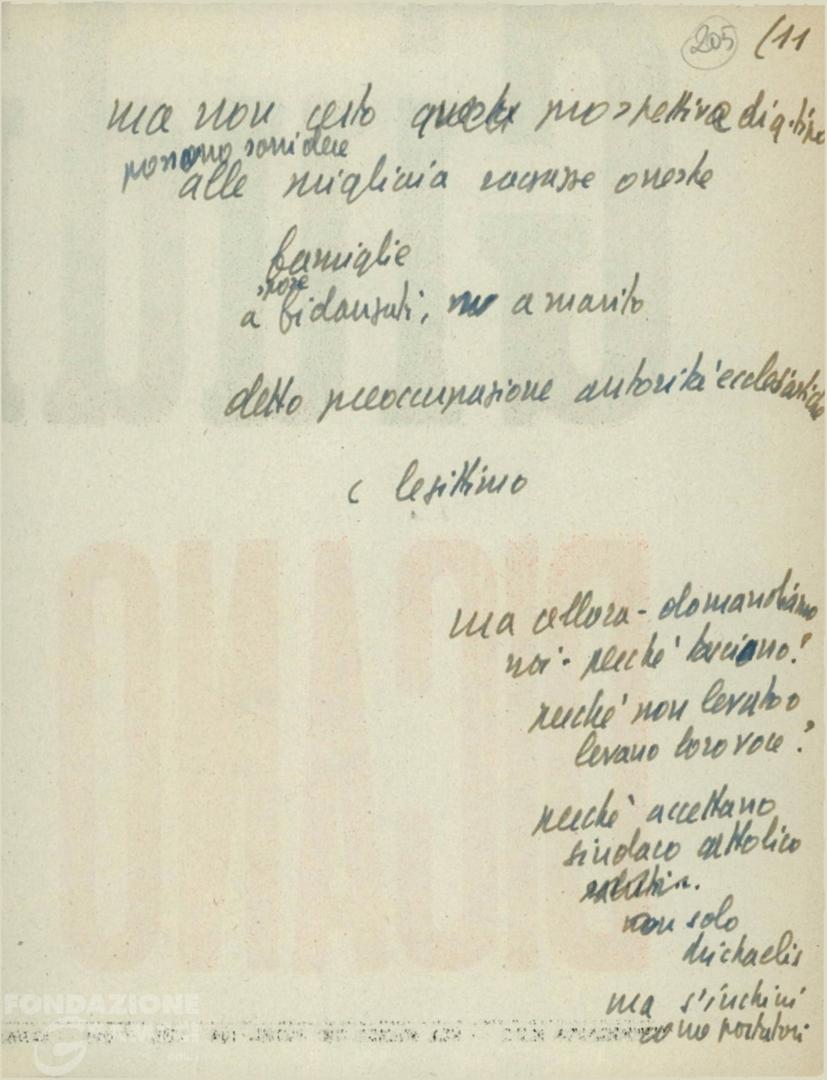 205 (11
ma non certo queste prospettive di q. tipo
possono sorridere
alle migliaia ragazze oneste
famiglie
spose
a fidanzati, a marito
detto preoccupazione autorità ecclesiastiche
è legittimo
ma allora - domandiamo
noi - perché tacciono?
perché non levato o
levano loro voce?
perché accettano
sindaco cattolico
non solo
Michaelis
ma s'inchini
come portatori
FONDAZIONE